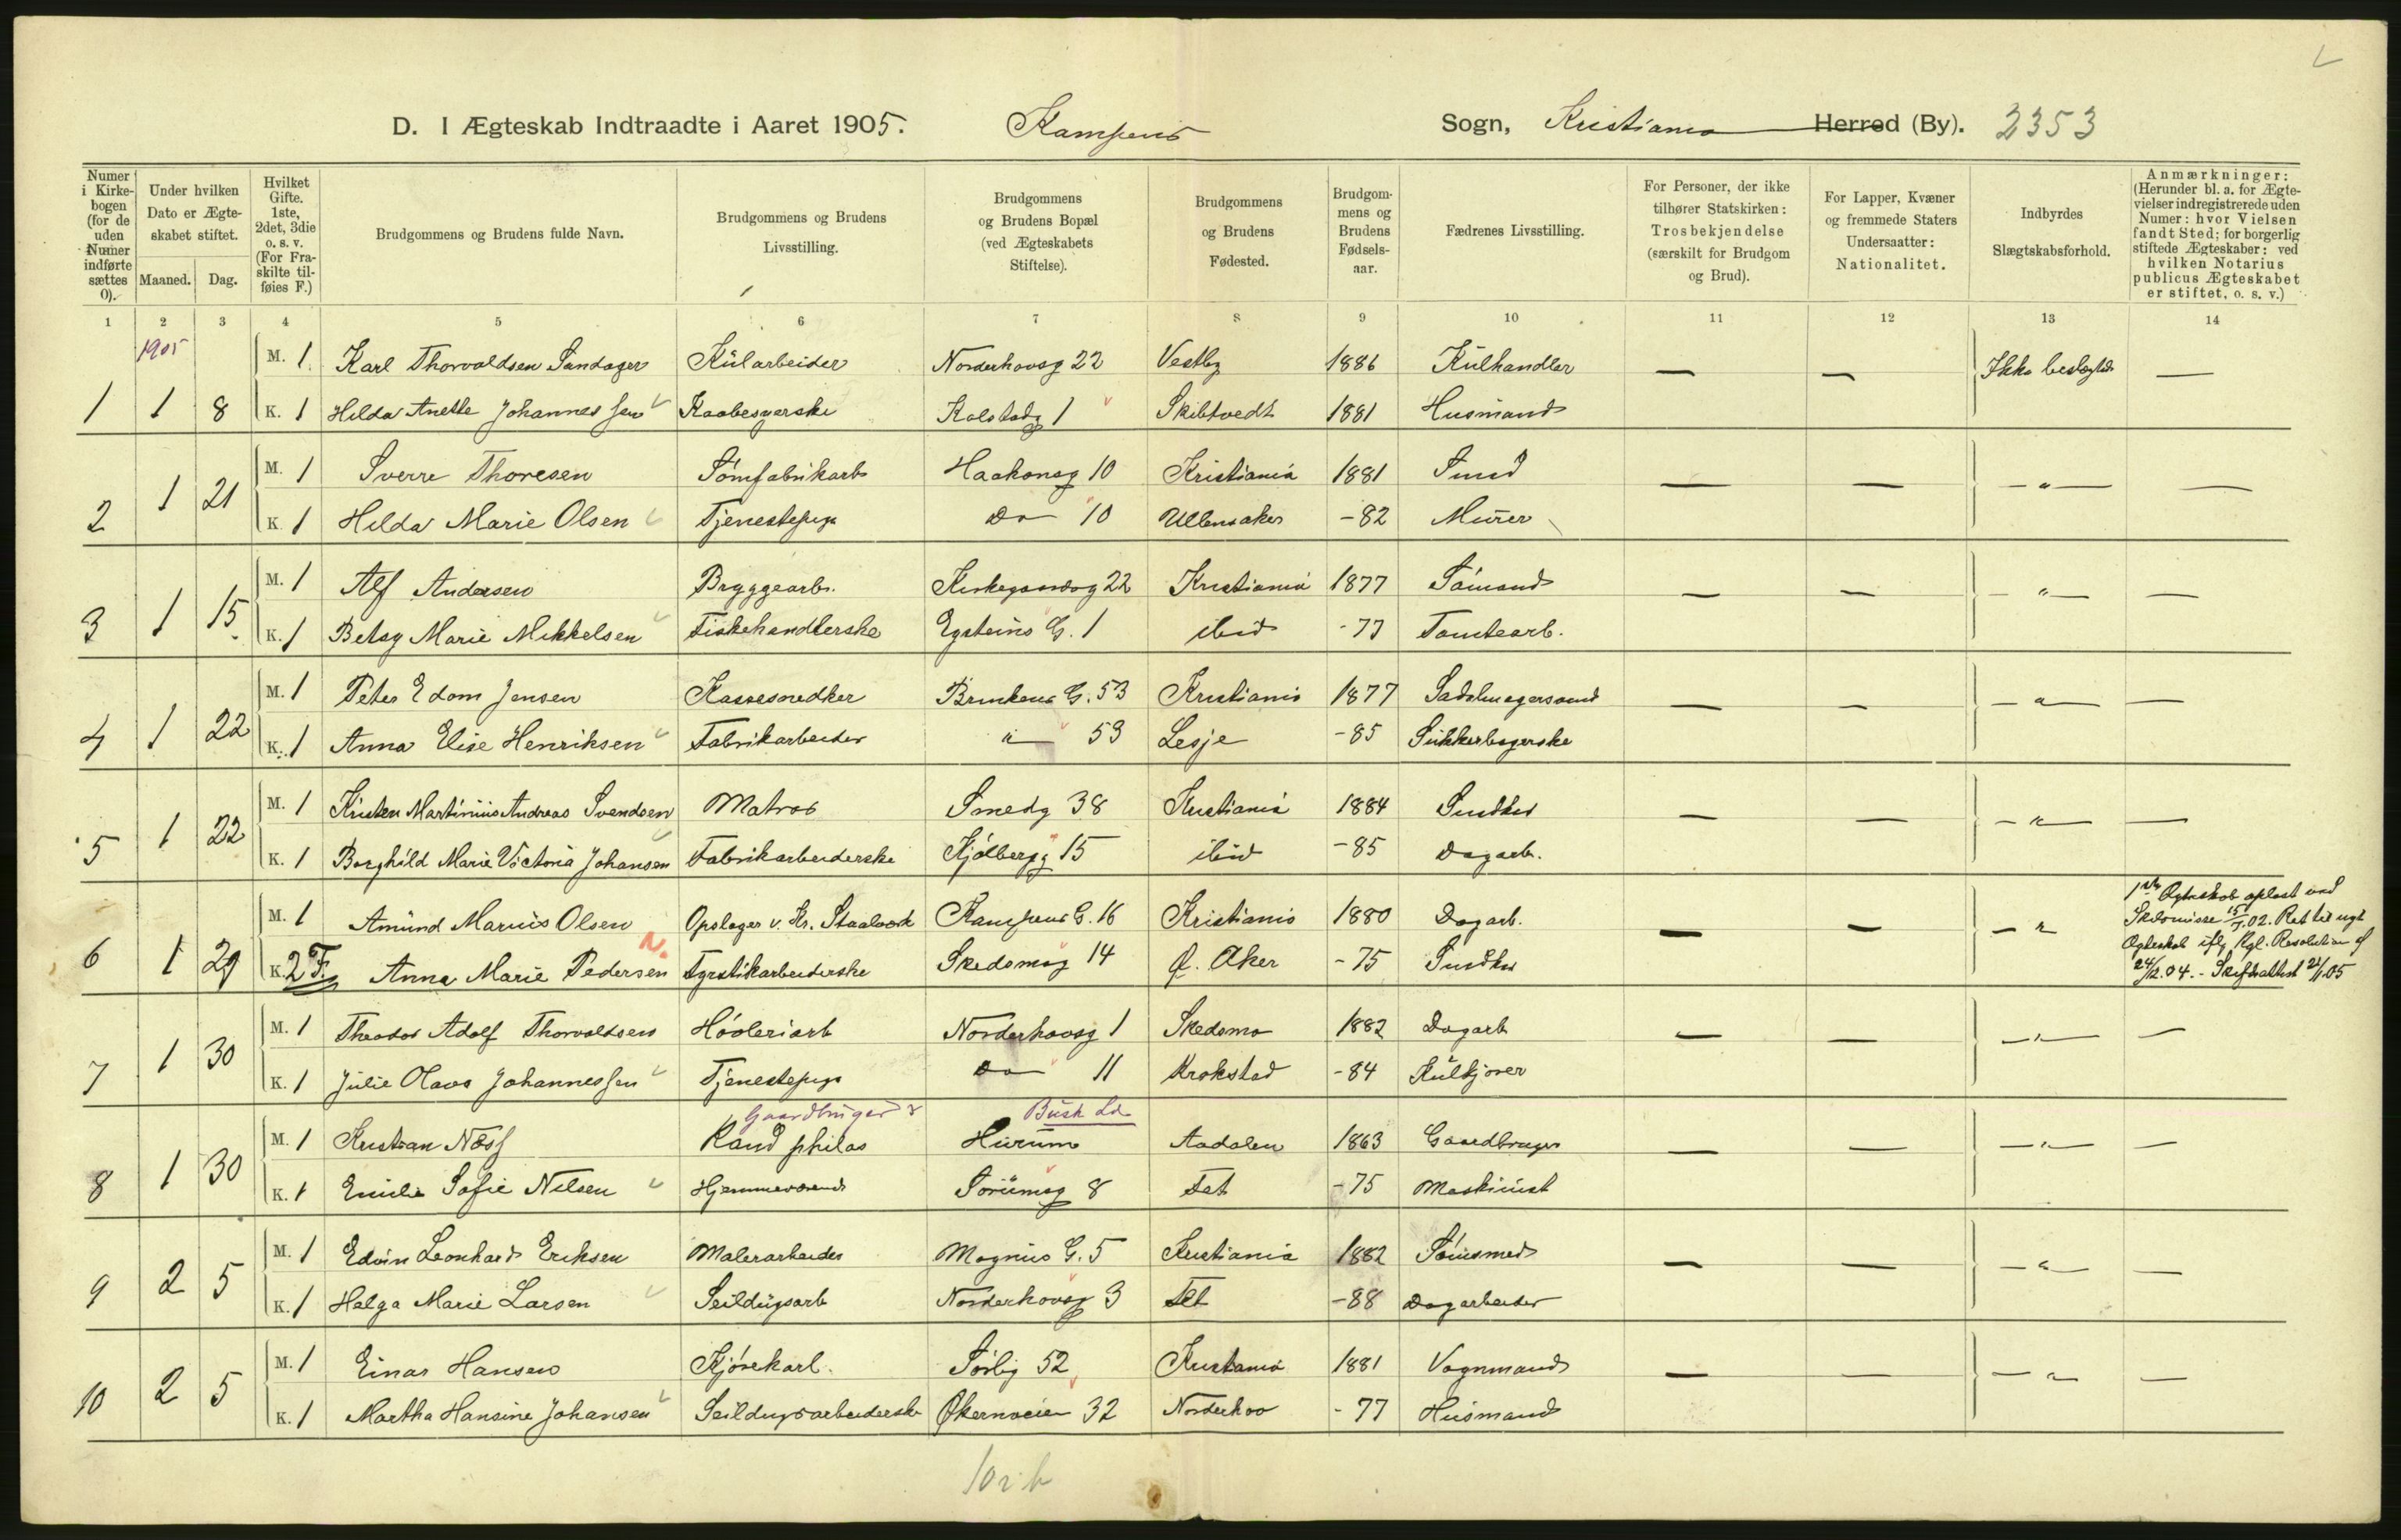 D. I Ægteskab Indtraadte i Aaret 1905. Kampens Sogn, Kristiania Herred (By). 2353
Numer i Kirkebogen (for de uden Numer indførte sættes 0).
Under hvilken Dato er Ægteskabet stiftet.
Maaned. Dag.
Hvilket Gifte. 1ste, 2det, 3die o. s. v. (For Fraskilte tilføies F.)
Brudgommens og Brudens fulde Navn.
Brudgommens og Brudens Livsstilling.
Brudgommens og Brudens Bopæl (ved Ægteskabets Stiftelse).
Brudgommens og Brudens Fødested.
Brudgommens og Brudens Fødselsaar.
Fædrenes Livsstilling.
For Personer, der ikke tilhører Statskirken: Trosbekjendelse (særskilt for Brudgom og Brud).
For Lapper, Kvæner og fremmede Staters Undersaatter: Nationalitet.
Indbyrdes Slægtskabsforhold.
Anmærkninger: (Herunder bl. a. for Ægtevielser indregistrerede uden Numer: hvor Vielsen fandt Sted; for borgerlig stiftede Ægteskaber: ved hvilken Notarius publicus Ægteskabet er stiftet, o. s. v.)
1 2 3 4 5 6 7 8 9 10 11 12 13 14
1905 M. 1 Karl Thorvaldsen Sandager Kularbeider Norderhovsg 22 Vestby 1886 Kulhandler — — Ikke beslægtede —
1 1 8 K. 1 Hilda Anette Johannessen Kaabesyerske Kolstadg 1 Skibtvedt 1881 Husmand
M. 1 Sverre Thoresen Sømfabrikarb Haakonsg 10 Kristiania 1881 Smed — — — " — —
2 1 21 K. 1 Hilda Marie Olsen Tjenestepige Do 10 Ullensaker -82 Murer
M. 1 Alf Andersen Bryggearb. Kirkegaardsg 22 Kristiania 1877 Sømand — — — " — —
3 1 15 K. 1 Betsy Marie Mikkelsen Fiskehandlerske Egsteins G. 1 ibid -77 Tomtearb.
M. 1 Peter Edom Jensen Kassesnedker Brinkens G. 53 Kristiania 1877 Sadelmagersvend — — — " — —
4 1 22 K. 1 Anna Elise Henriksen Fabrikarbeider " 53 Lesje -85 Sukkerbagerske
M. 1 Kristen Martinius Andreas Svendsen Matros Smedg 38 Kristiania 1884 Snedker — — — " — —
5 1 22 K. 1 Borghild Marie Victoria Johansen Fabrikarbeiderske Kjølbergg 15 ibid -85 Dagarb.
M. 1 Amund Marius Olsen Opslager v. Kr. Staalværk Kampens G. 16 Kristiania 1880 Dagarb. — — — " 1ste Ægteskab opløst ved
6 1 29 K. 2 F. Anna Marie Pedersen N. Fyrstikarbeiderske Skedsmog 14 Ø. Aker -75 Snedker Skilsmisse 02. Ret til nyt
Ægteskab iflg Kgl. Resolution af
24/12.04. - Skifteattest 21/1.05
M. 1 Theodor Adolf Thorvaldsen Høvleriarb Norderhovsg 1 Skedsmo 1882 Dagarb — — — " — —
7 1 30 K. 1 Julie Olava Johannessen Tjenestepige Do 11 Krokstad -84 Kulkjører
Gaardbruger Busk Ld.
M. 1 Kristian Næss Kand philos Hurum Aadalen 1863 Gaardbruger — — — " — —
8 1 30 K. 1 Emilie Sofie Nilsen Hjemmeværende Sørumsg 8 Fet -75 Maskinist
M. 1 Edvin Leonhard Eriksen Malerarbeider Magnus G. 5 Kristiania 1882 Sømsmed — — — " — —
9 2 5 K. 1 Helga Marie Larsen Seildugsarb Norderhovsg 3 Fet -88 Dagarbeider
M. 1 Einar Hansen Kjørekarl. Sørlig 52 Kristiania 1881 Vognmand — — — " — —
10 2 5 K. 1 Martha Hansine Johansen Seildugsarbeiderske Økernveien 32 Norderhov -77 Husmand